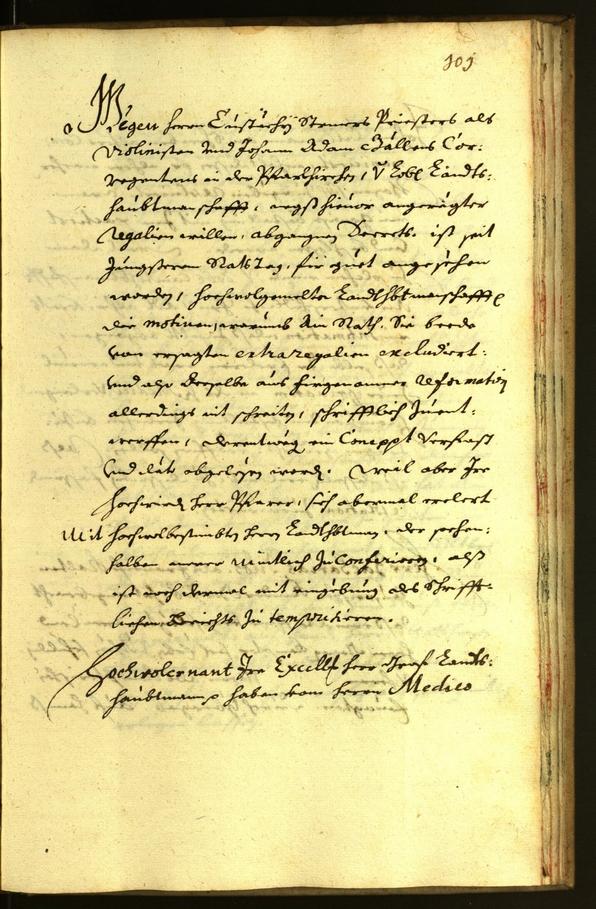 101
Wegen herrn Eustachÿ Steners Priesters als
Violinisten vnd Johann Adam Bällens Cor:
regentens in der Pfarrkirchen, Löbl Landts:
haubtmanschafft, negst hieuor angeregter
regalien willen, abgangnen Decrets. ist seit
Jüngsteren Rats Tag, für guet angesehen
worden, hochwolgemelter Landtshbtmanschafft
die motiuen, warumb Ain Rath, Sie beede
von ersagten extra regalien excludiert:
vnd also derselbe aus fürgenomner reformation
allerdings nit schreiten, schrifftlich Zuent:
werffen, derentweg ein Concept verfasst
vnd abgelesen word. weil aber Ire
hochwierd herr Pfarrer, sich abermal erclert
Mit hochwolbestimbten herrn Landtshbtman, der sachen:
halben mündtlich Zu Conferieren, als
ist noch dermal mit eingebung des Schrifft:
lichen Berichts Zu temporisieren.
Hochwolernant Ire Excell herr Graf Landts:
haubtmann haben vom herrn Medico